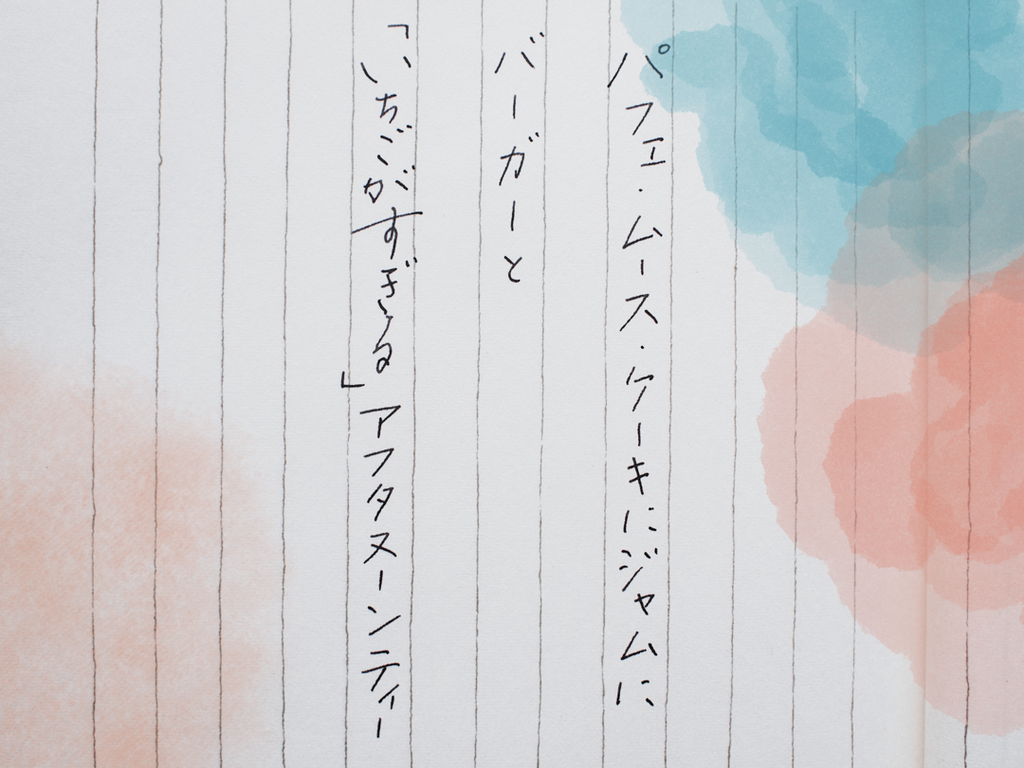 パフェ・ムース・ケーキにジャムに
バーガーと
「いちごがすぎる」アフタヌーンティー